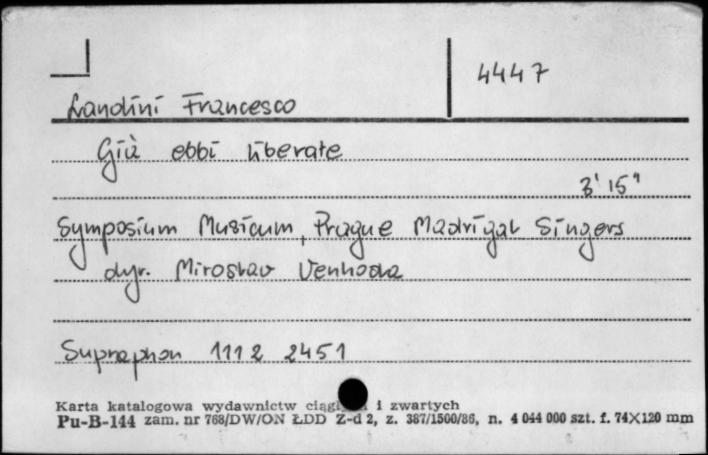 4447
Landini Francesco
Già ebbi liberate
3'15"
Symposium Musicum, Prague Madrigal Singers
dyr. Miroslav Venhoda
Supraphon 1112 2451
Karta katalogowa wydawnictw i zwartych
Pu-B-144 zam. nr 768/DW/ON ŁDD Z-d 2, z. 387/1500/86, n. 4 044 000 szt. f. 74X120 mm